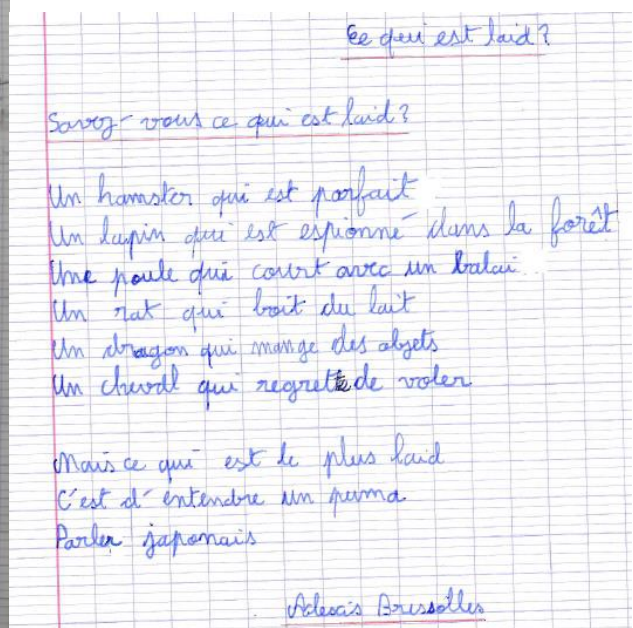 Ce qui est laid?
Savez-vous ce qui est laid?
Un hamster qui est parfait
Un lapin qui est espionné dans la forêt
Une poule qui court avec un balai
Un rat qui boit du lait
Un dragon qui mange des objets
Un cheval qui regrette de voler
Mais ce qui est le plus laid
C'est d'entendre un puma
Parler japonais
Alexis Brussolles